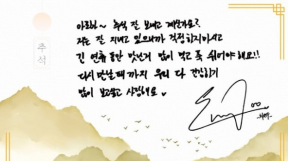 추석
아희안~ 추석 잘 보내고 계신가요?
저는 잘 지내고 있으니까 걱정하지마시고
긴 연휴 동안 맛난거 많이 먹고 푹 쉬어야해요!!
다시 만날 때까지 우리 다 건강하기
많이 보고싶고 사랑해요